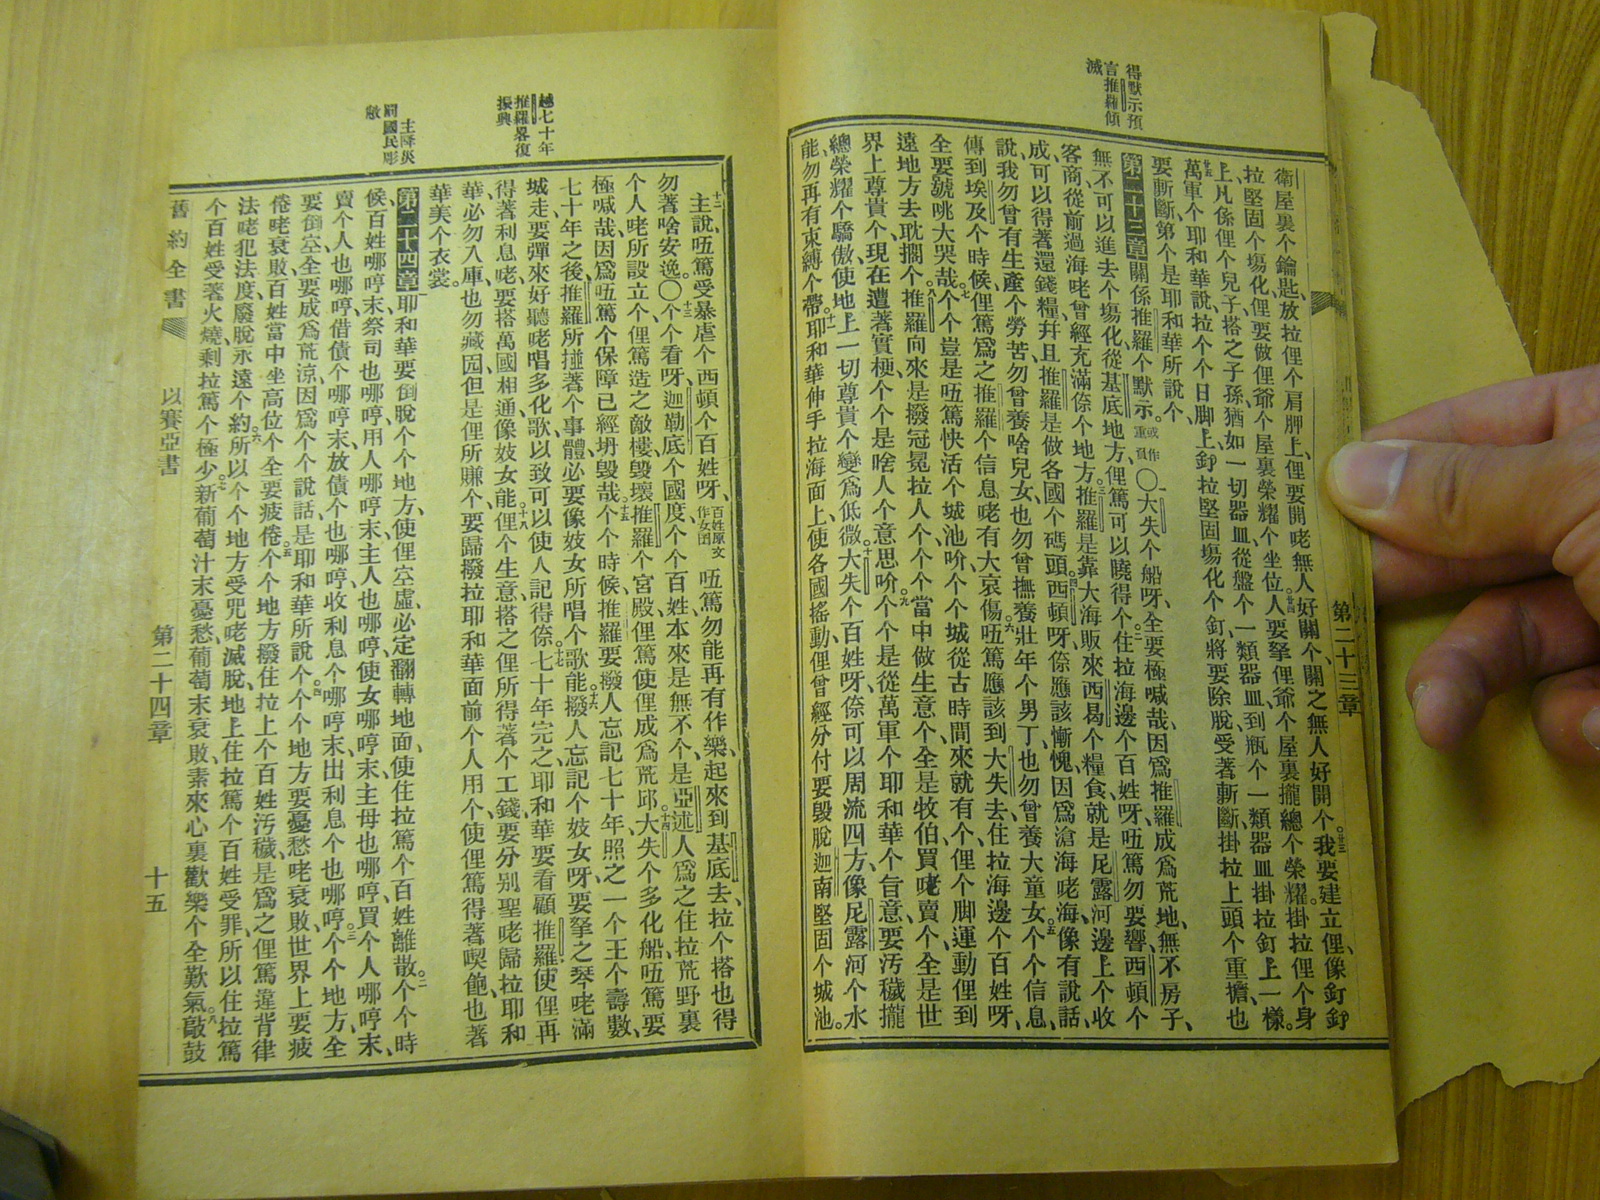 第二十三章
衛屋裏个鑰匙放拉俚个肩胛上、俚要開咾無人好關个、關之無人好開个。我要建立俚、像釘釘
拉堅固个塲化、俚要做俚爺个屋裏榮耀个坐位。人要拏俚爺个屋裏攏總个榮耀、掛拉俚个身
上、凡係俚个兒子搭之子孫、猶如一切器皿、從盤个一類器皿、到瓶个一類器皿、掛拉釘上一樣。
萬軍个耶和華說、拉个个日脚上、釘拉堅固塲化个釘、將要除脫、受著斬斷、掛拉上頭个重擔、也
要斬斷、第个是耶和華所說个、
得默示預
言推羅傾
滅
第二十三章 關係推羅个默示。或作重負 〇一大失个船呀、全要極喊哉、因爲推羅成爲荒地、無不房子、
無不可以進去个塲化、從基底地方、俚篤可以曉得个。二住拉海邊个百姓呀、㕶篤勿要響、西頓个
客商、從前過海咾、曾經充滿倷个地方。三推羅是靠大海販來西曷个糧食、就是尼露河邊上个收
成、可以得著還錢糧、幷且推羅是做各國个碼頭。四西頓呀、倷應該慚愧、因爲滄海咾海像有說話、
說我勿曾有生產个勞苦、勿曾養啥兒女、也勿曾撫養壯年个男丁、也勿曾養大童女个。五个信息、
傳到埃及个時候、俚篤爲之推羅个信息咾有大哀傷。六㕶篤應該到大失去、住拉海邊个百姓呀、
全要號咷大哭哉。七个个豈是㕶篤快活个城池吤、个个城從古時間來就有个、俚个脚運動俚到
遠地方去耽擱个。八推羅向來是撥冠冕拉人个、个个當中做生意个、全是牧伯、買咾賣个、全是世
界上尊貴个、現在遭著實梗个、个是啥人个意思吤。九个个是從萬軍个耶和華个旨意、要汚穢攏
總榮耀个驕傲、使地上一切尊貴个變爲低微。十大失个百姓呀、倷可以周流四方、像尼露河个水、
能勿再有束縛个帶。十一耶和華伸手拉海面上、使各國搖動、俚曾經分付要毀脫迦南堅固个城池。
十二主說、㕶篤受暴虐个西頓个百姓呀、百姓原文作女囝 㕶篤勿能再有作樂、起來到基底去、拉个搭也得
勿著啥安逸。〇十三个个看呀、迦勒底个國度、个个百姓、本來是無不个、是亞述人爲之住拉荒野裏
个人咾所設立个、俚篤造之敵樓、毀壞推羅个宮殿、俚篤使俚成爲荒邱。十四大失个多化船、㕶篤要
極喊哉、因爲㕶篤个保障、已經坍毀哉。十五个个時候、推羅要撥人忘記七十年、照之一个王个壽數、
越七十年
推羅畧復
振興
七十年之後、推羅所碰著个事體、必要像妓女所唱个歌能。十六撥人忘記个妓女呀、要拏之琴咾滿
城走、要彈來好聽咾唱多化歌、以致可以使人記得倷。十七七十年完之、耶和華要看顧推羅、使俚再
得著利息咾、要搭萬國相通、像妓女能。十八俚个生意、搭之俚所得著个工錢、要分别聖咾歸拉耶和
華、必勿入庫、也勿藏囥、但是俚所賺个、要歸撥拉耶和華面前个人用个、使俚篤得著喫飽、也著
華美个衣裳。
主降災
罰國民彫
敝
第二十四章 一耶和華要倒脫个个地方、使俚空虛、必定翻轉地面、使住拉篤个百姓離散。二个个時
候、百姓哪哼末、祭司也哪哼、用人哪哼末、主人也哪哼、使女哪哼末、主母也哪哼、買个人哪哼末、
賣个人也哪哼、借債个哪哼末、放債个也哪哼、收利息个哪哼末、出利息个也哪哼。三个个地方、全
要倒空、全要成爲荒涼、因爲个个說話、是耶和華所說个。四个个地方要憂愁咾衰敗、世界上要疲
倦咾衰敗、百姓當中坐高位个全要疲倦。五个个地方、撥住拉上个百姓汚穢、是爲之俚篤違背律
法咾犯法度、廢脫永遠个約。六所以个个地方受咒咾滅脫、地上住拉篤个百姓受罪、所以住拉篤
个百姓受著火燒、剩拉篤个極少。七新葡萄汁末憂愁、葡萄末衰敗、素來心裏歡樂个全歎氣。八敲鼓
舊約全書　以賽亞書　第二十四章　十五